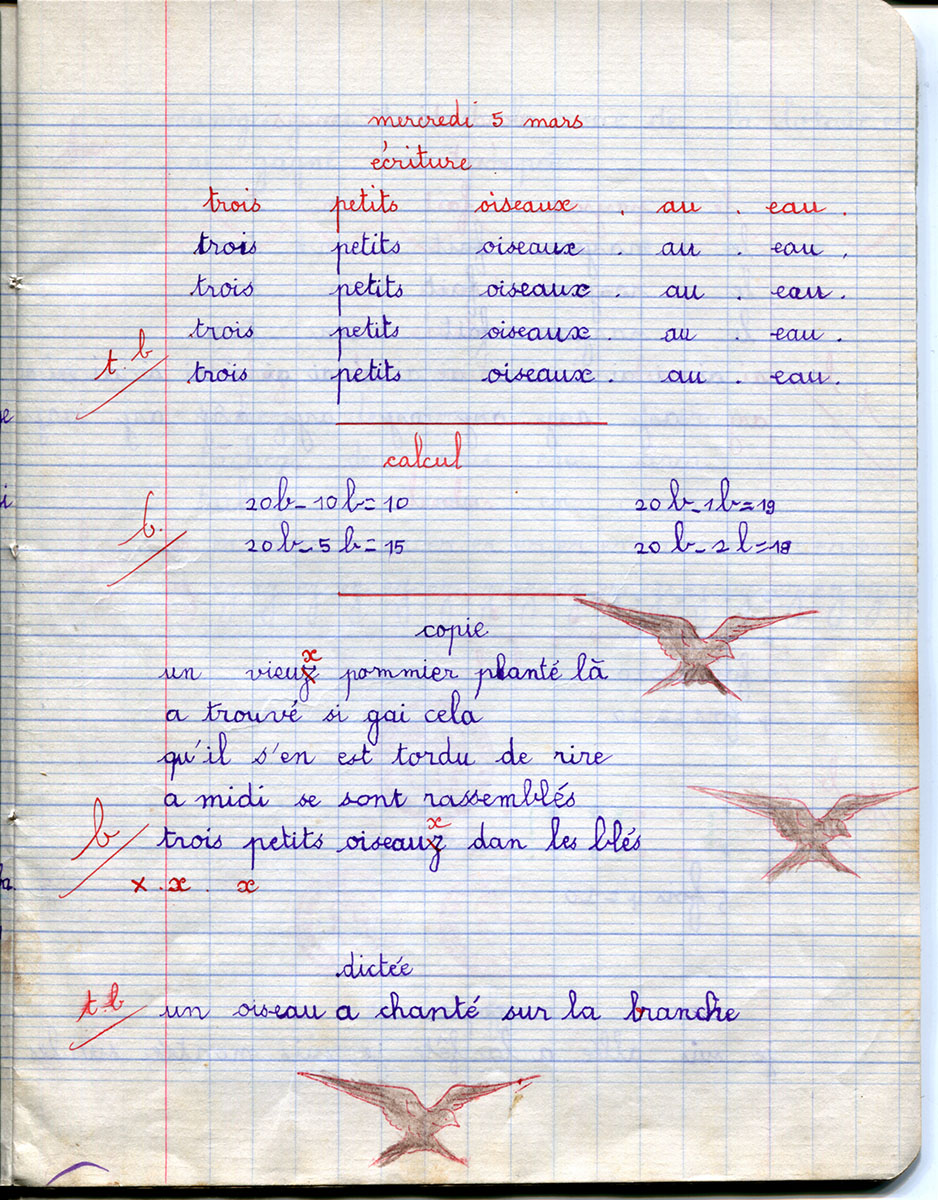 mercredi 5 mars
écriture
trois petits oiseaux . au . eau .
trois petits oiseaux . au . eau .
trois petits oiseaux . au . eau .
trois petits oiseaux . au . eau .
t.b trois petits oiseaux . au . eau .
calcul
b. 20b - 10b = 10 20b - 1b = 19
20b - 5b = 15 20b - 2b = 18
copie
x
un vieuz pommier planté là
a trouvé si gai cela
qu'il s'en est tordu de rire
a midi se sont rassemblés
x
b trois petits oiseauz dan les blés
x . x . x
dictée
t.b un oiseau a chanté sur la branche